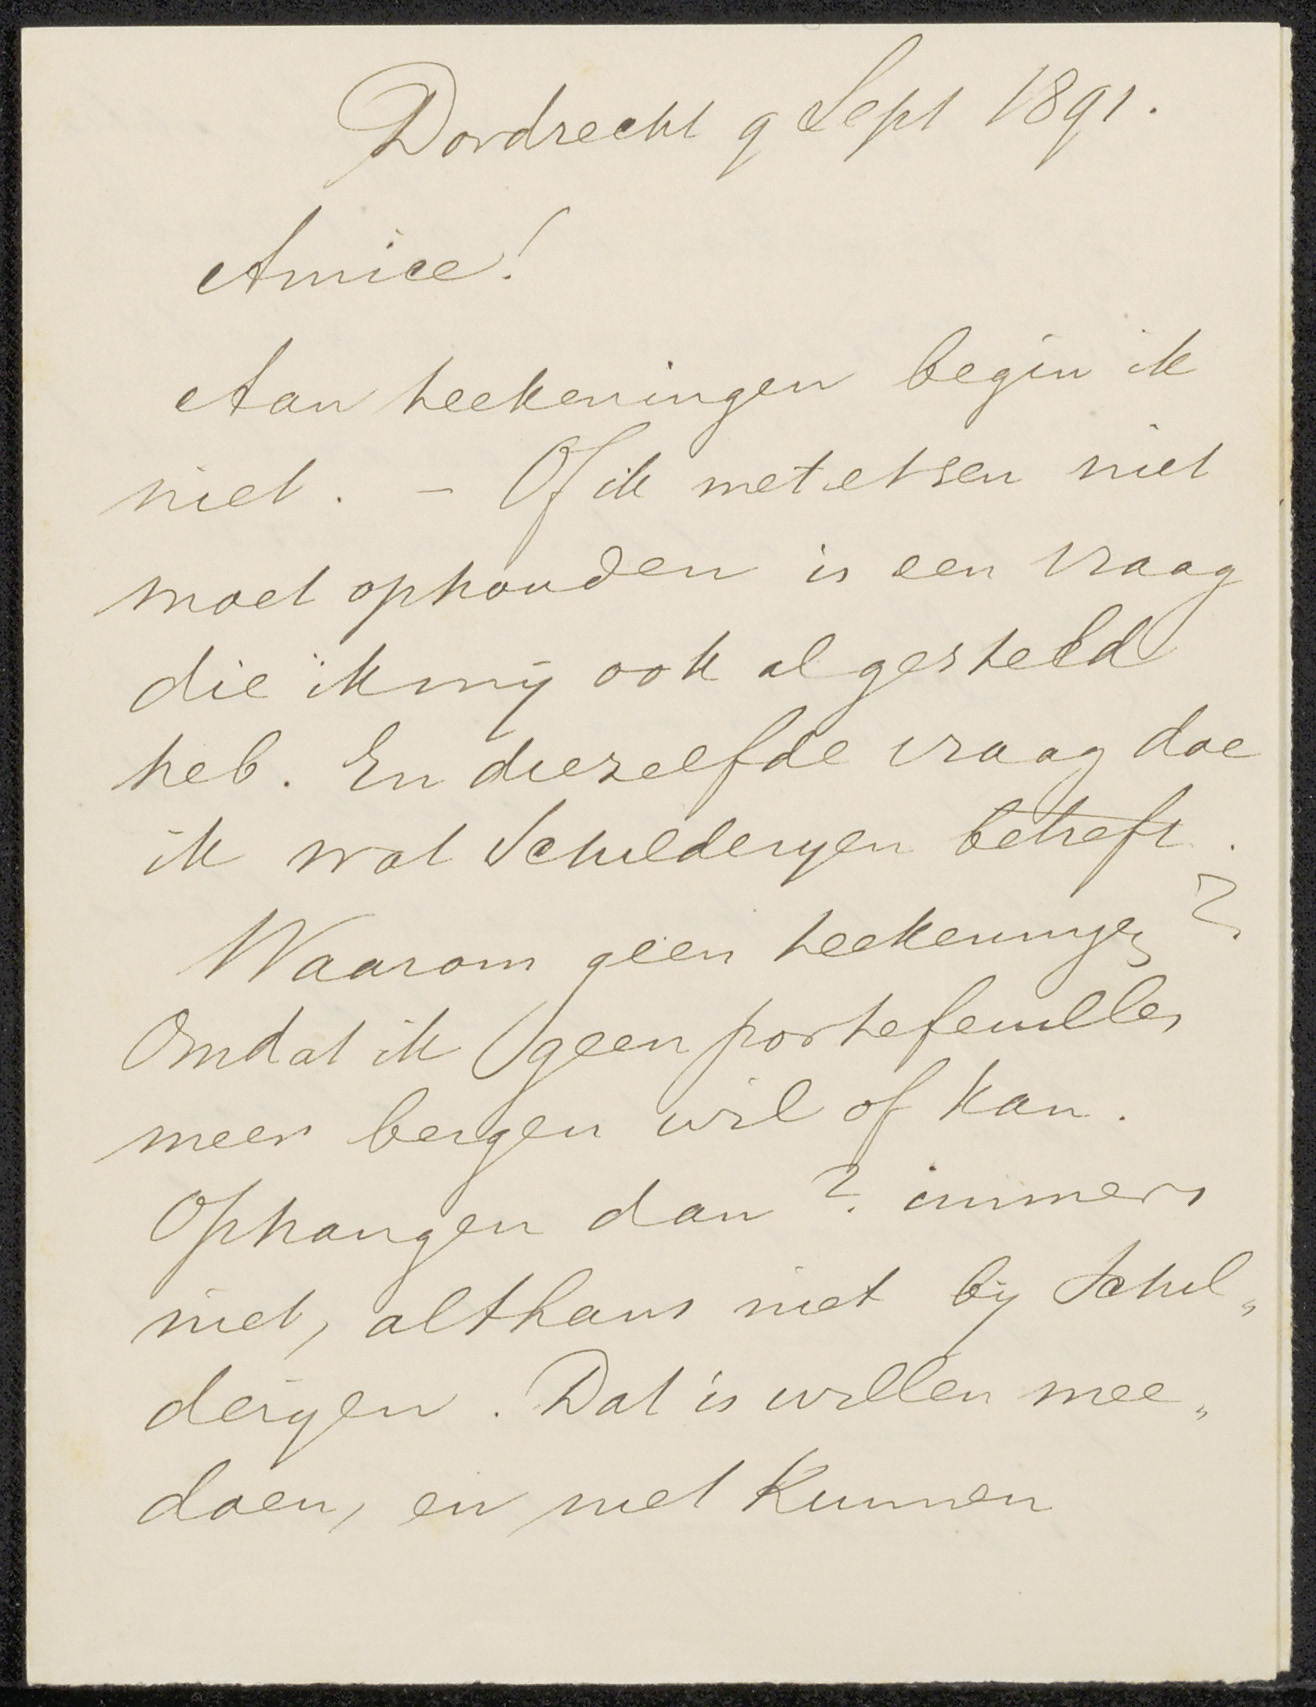 Dordrecht 9 Sept 1891.
Amice!
Aan teekeningen begin ik
niet. – Of ik met etsen niet
moet ophouden is een vraag
die ik mij ook al gesteld
heb. En diezelfde vraag doe
ik wat Schilderijen betreft.
Waarom geen teekeningen?
Omdat ik geen portefeuilles
meer bergen wil of kan.
Ophangen dan? immers
niet, althans niet bij Schil„
derijen. Dat is willen mee„
doen, en niet kunnen